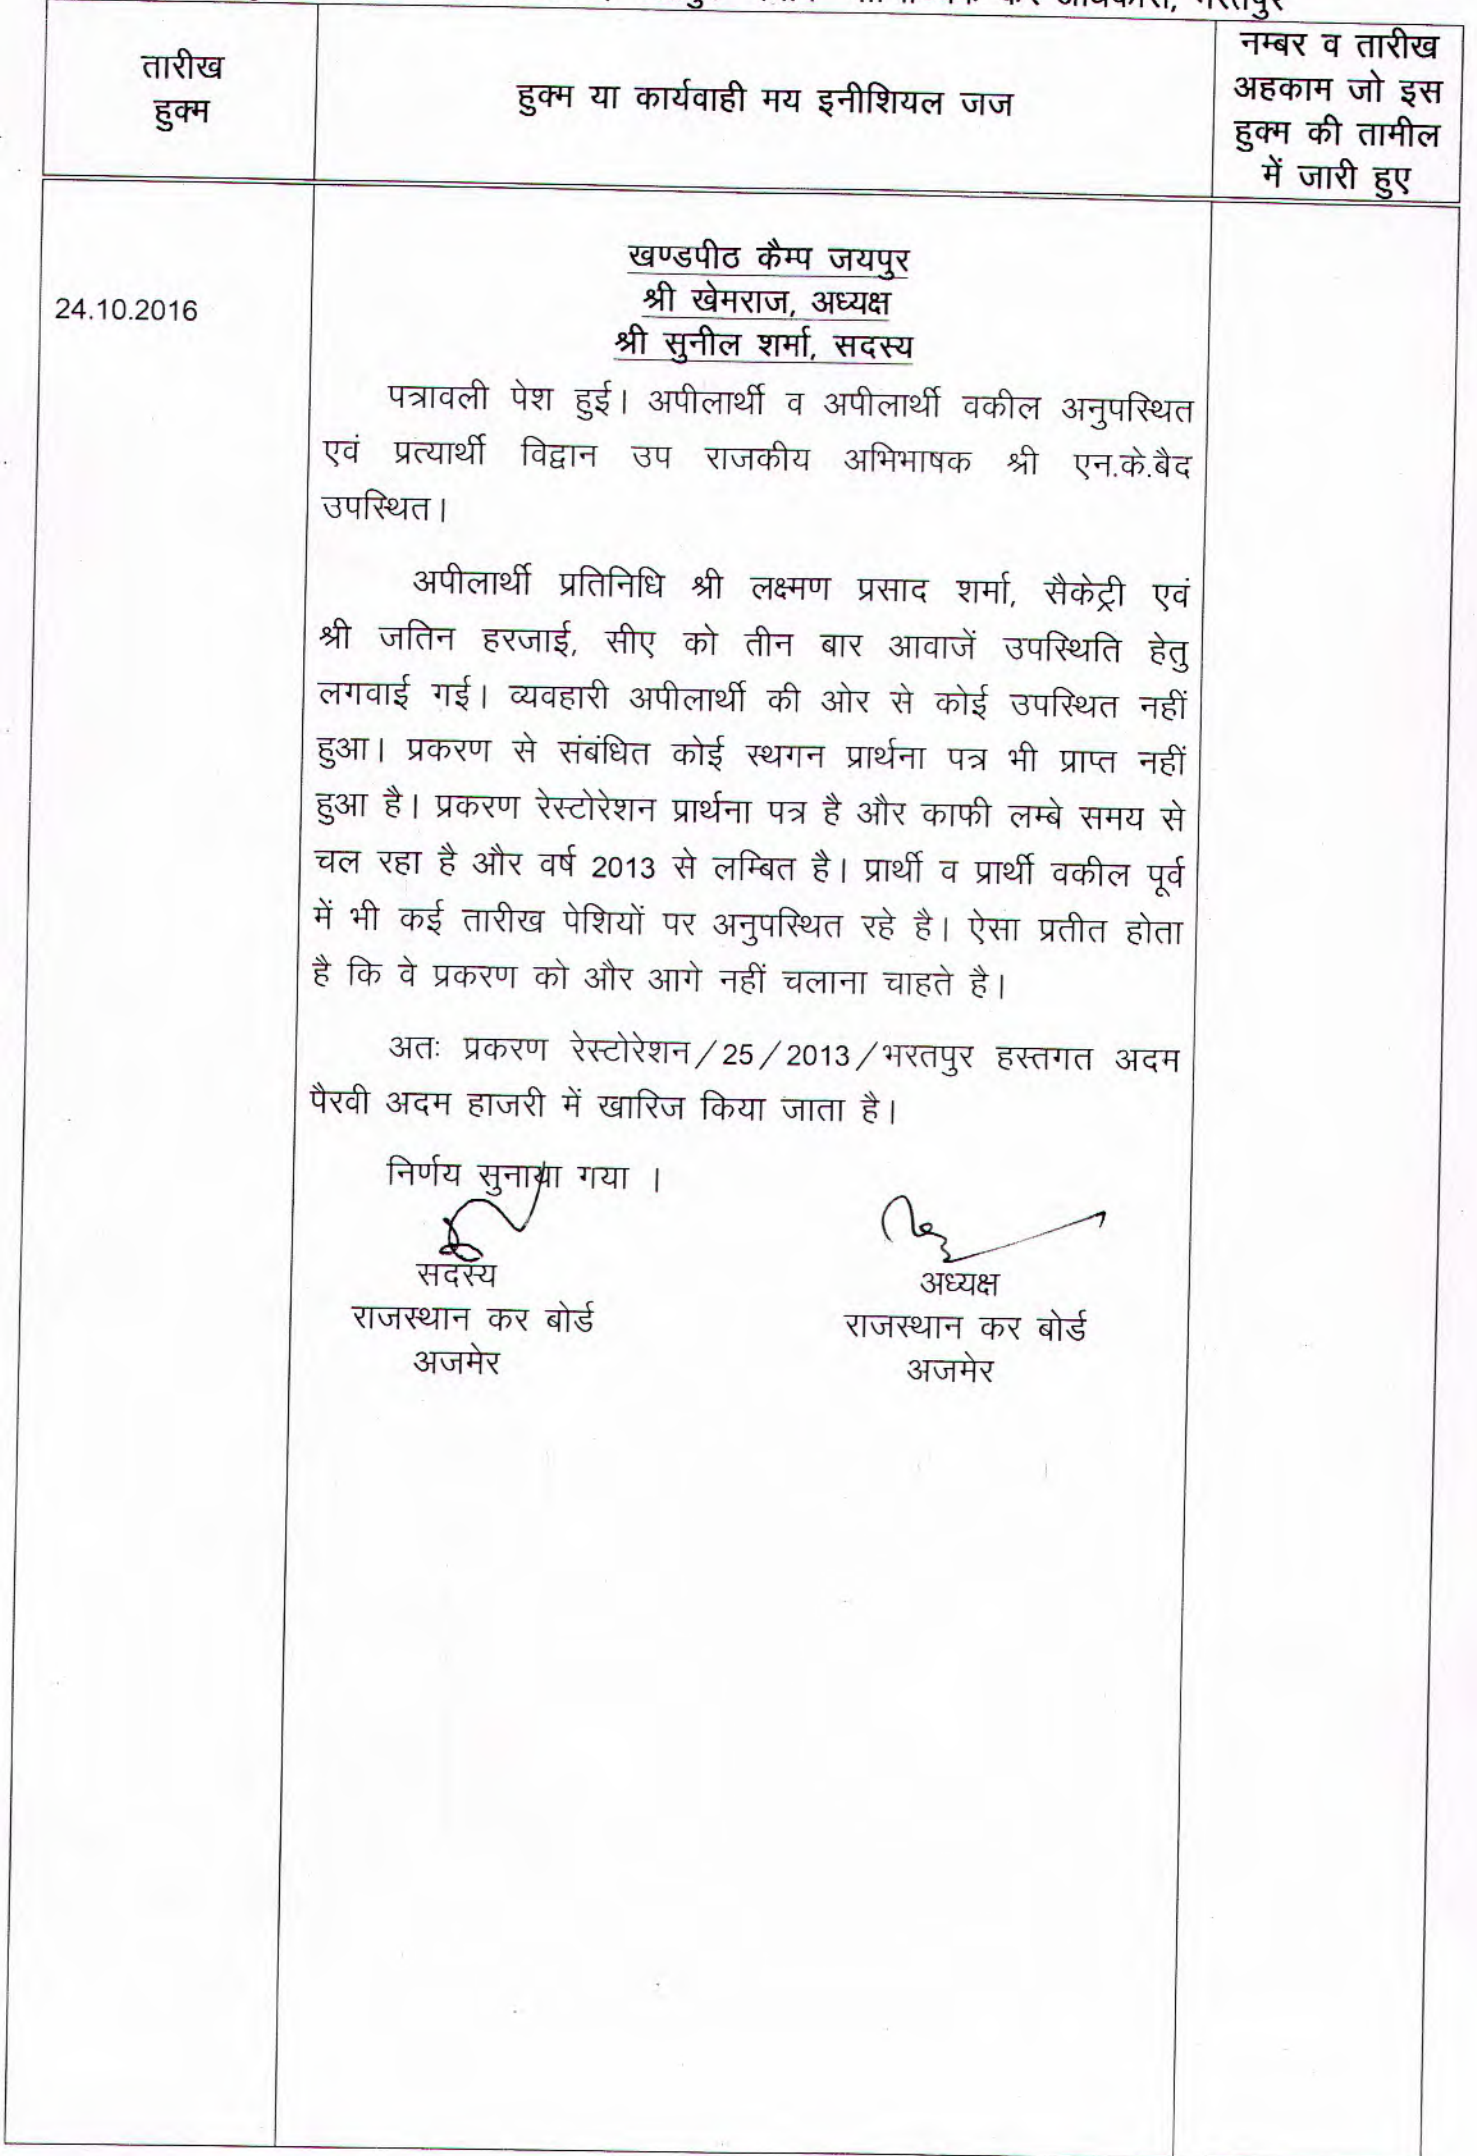 कर अधिकारी, भरतपुर
तारीख
हुक्म
हुक्म या कार्यवाही मय इनीशियल जज
नम्बर व तारीख
अहकाम जो इस
हुक्म की तामील
में जारी हुए
24.10.2016
खण्डपीठ कैम्प जयपुर
श्री खेमराज, अध्यक्ष
श्री सुनील शर्मा, सदस्य
पत्रावली पेश हुई। अपीलार्थी व अपीलार्थी वकील अनुपस्थित
एवं प्रत्यार्थी विद्वान उप राजकीय अभिभाषक श्री एन.के.बैद
उपस्थित।
अपीलार्थी प्रतिनिधि श्री लक्ष्मण प्रसाद शर्मा, सैकेट्री एवं
श्री जतिन हरजाई, सीए को तीन बार आवाजें उपस्थिति हेतु
लगवाई गई। व्यवहारी अपीलार्थी की ओर से कोई उपस्थित नहीं
हुआ। प्रकरण से संबंधित कोई स्थगन प्रार्थना पत्र भी प्राप्त नहीं
हुआ है। प्रकरण रेस्टोरेशन प्रार्थना पत्र है और काफी लम्बे समय से
चल रहा है और वर्ष 2013 से लम्बित है। प्रार्थी व प्रार्थी वकील पूर्व
में भी कई तारीख पेशियों पर अनुपस्थित रहे है। ऐसा प्रतीत होता
है कि वे प्रकरण को और आगे नहीं चलाना चाहते है।
अतः प्रकरण रेस्टोरेशन/25/2013/भरतपुर हस्तगत अदम
पैरवी अदम हाजरी में खारिज किया जाता है।
निर्णय सुनाया गया ।
सदस्य
राजस्थान कर बोर्ड
अजमेर
अध्यक्ष
राजस्थान कर बोर्ड
अजमेर